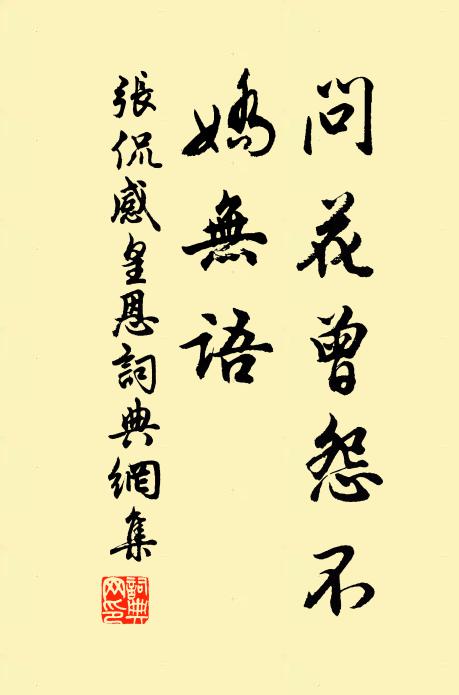 問花曾怨不
嬌無語
張侃感皇恩詞典網集
詞典
网印